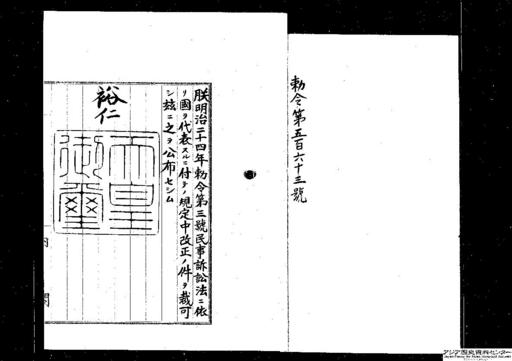 勅令第五百六十三號
朕明治二十四年勅令第三號民事訴訟法ニ依
リ國ヲ代表スルニ付テノ規定中改正ノ件ヲ裁可
シ玆ニ之ヲ公布セシム
裕仁
天皇御璽
内閣
アジア歴史資料センター